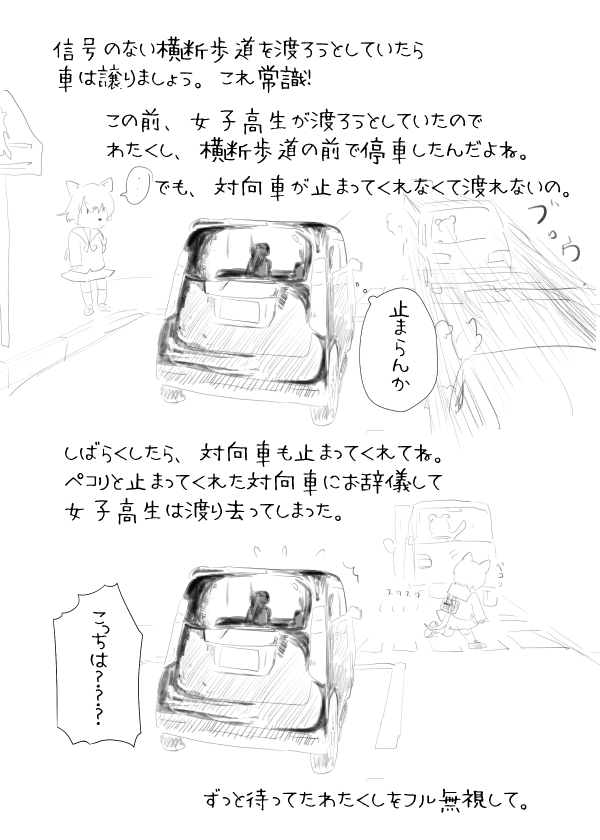 信号のない横断歩道を渡ろうとしていたら
車は譲りましょう。これ常識!
この前、女子高生が渡ろうとしていたので
わたくし、横断歩道の前で停車したんだよね。
…
でも、対向車が止まってくれなくて渡れないの。
ブロウ
止まらんか
しばらくしたら、対向車も止まってくれてね。
ペコリと止まってくれた対向車にお辞儀して
女子高生は渡り去ってしまった。
ペコリ
こっちは???
ずっと待ってたわたくしをフル無視して。